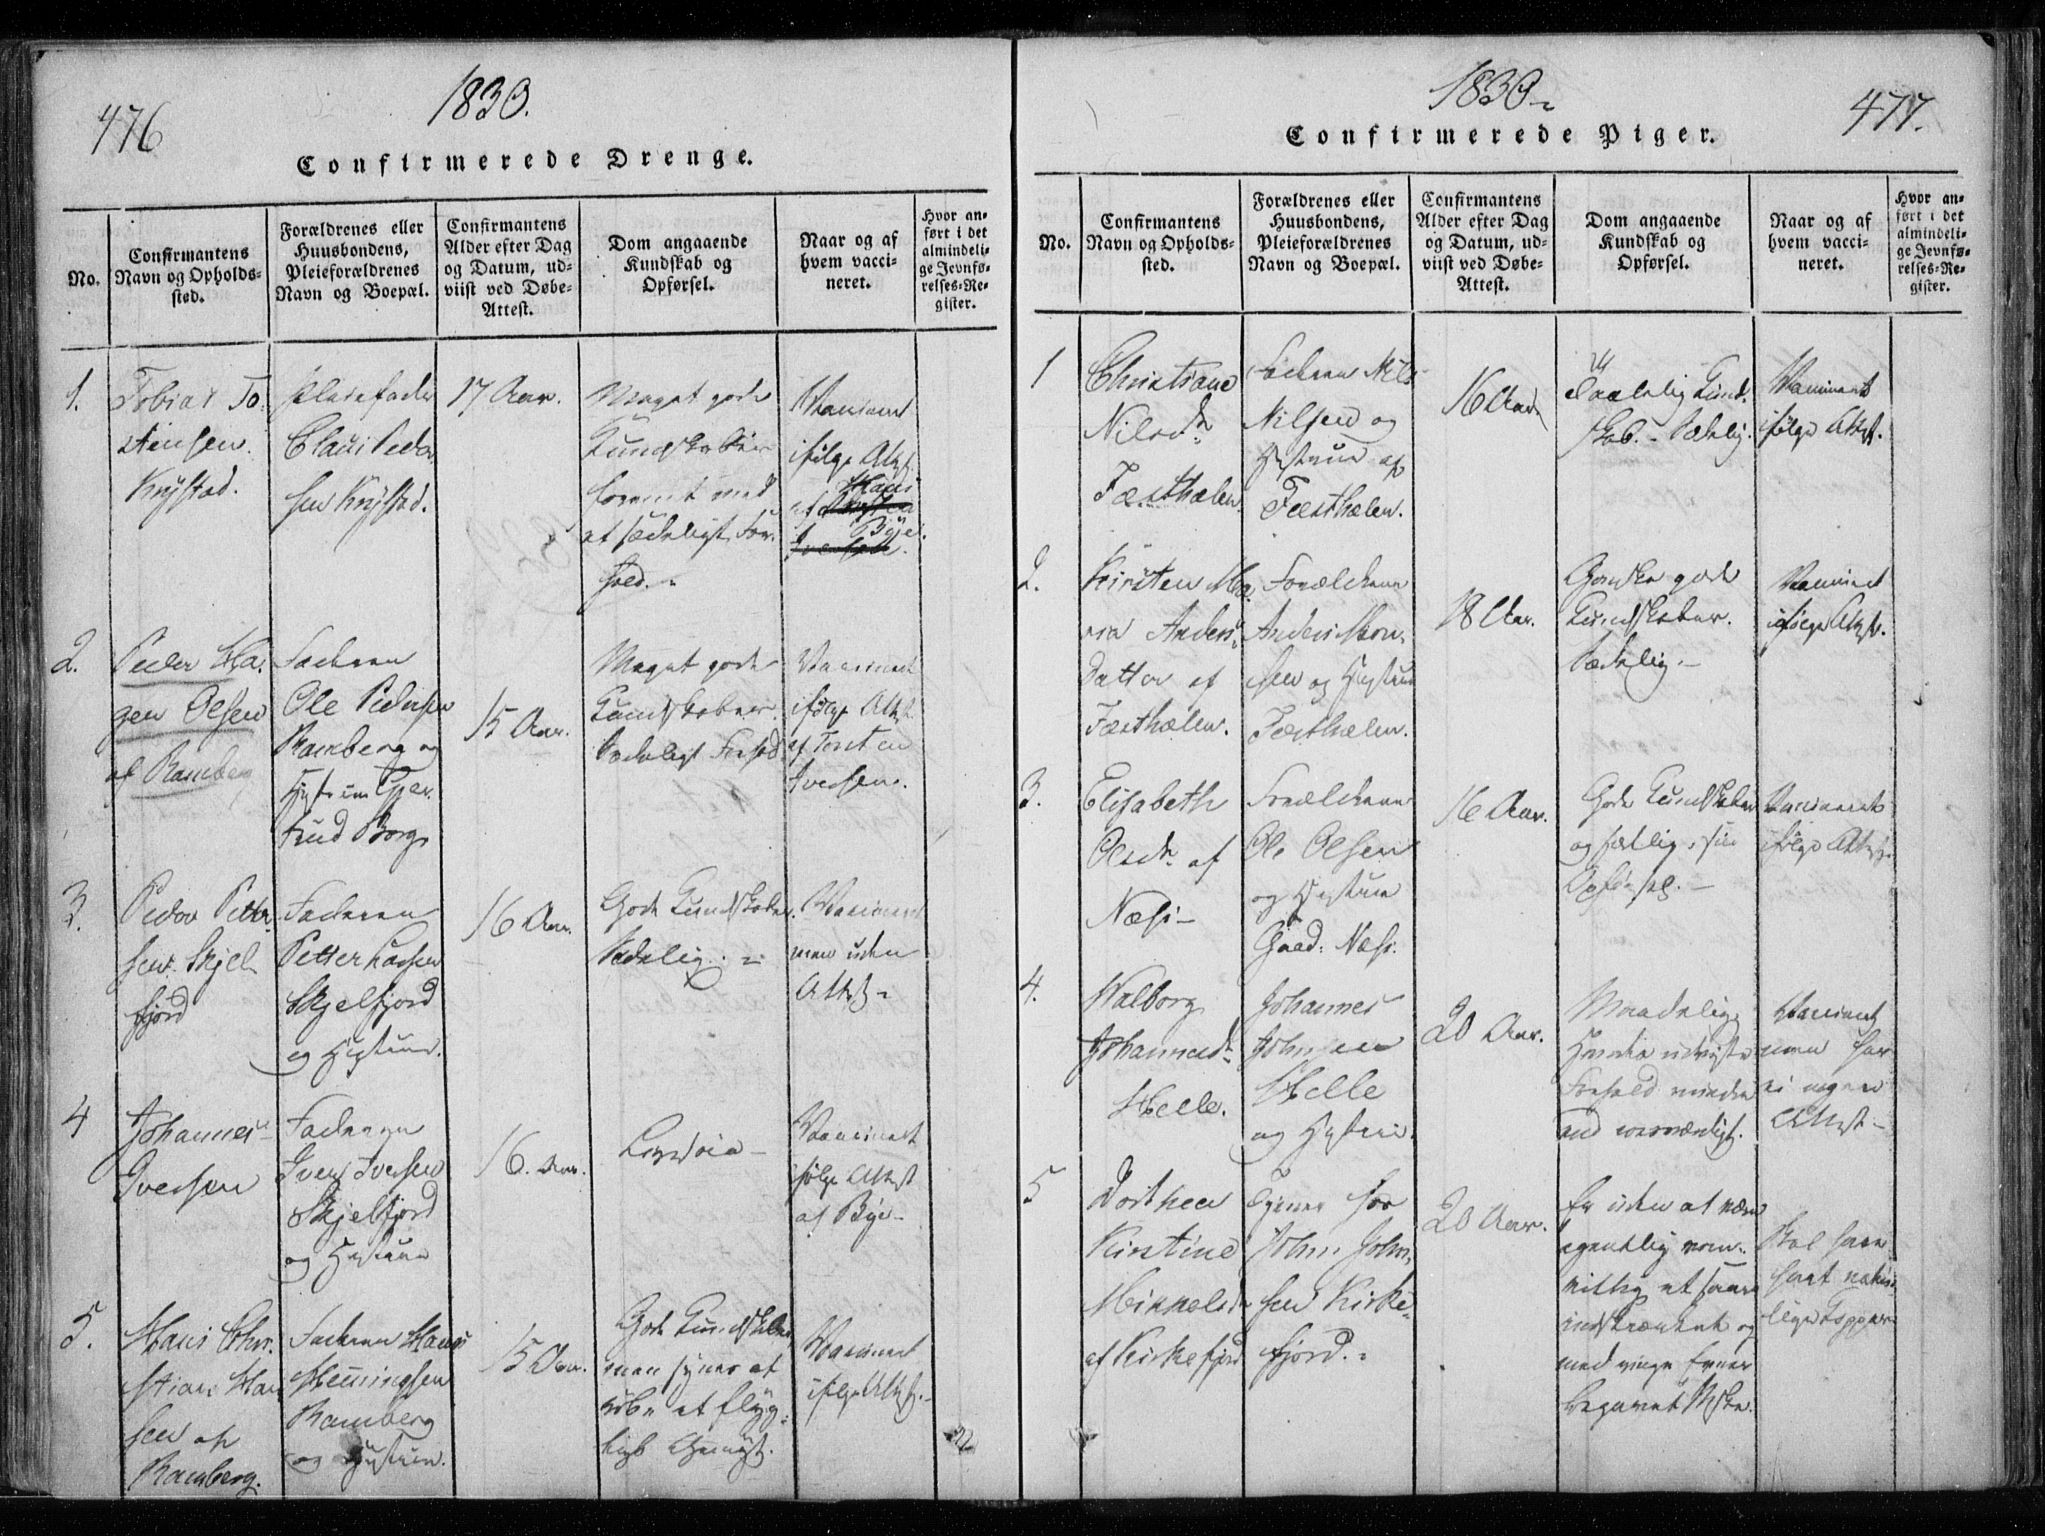 476
1830.
Confirmerede Drenge.
No.
Confirmantens
Navn og Opholds-
sted.
Forældrenes eller
Huusbondens,
Pleieforældrenes
Navn og Boepæl.
Confirmantens
Alder efter Dag
og Datum, ud-
viist ved Døbe-
Attest.
Dom angaaende
Kundskab og
Opførsel.
Naar og af
hvem vacci-
neret.
Hvor an-
ført i det
almindeli-
ge Jevnfø-
relses-Re-
gister.
1.
Tobias To-
stensen
Knystad.
Pleiefader
Claus Peder-
sen Knystad.
17 Aar.
Meget gode
Kundskaber
forenet med
et sædeligt For-
hold.
Vaccineret
ifølge Attest
af Hans
Bye.
2.
Peder Ha-
gen Olsen
af Ramberg
Faderen
Ole Pedersen
Ramberg og
Hustrue Gjer-
trud Borg
15 Aar.
Meget gode
Kundskaber.
Sædeligt Forhold.
Vaccineret
ifølge Attest
af Torsten
Iversen.
3.
Peder Petter-
sen Skjel-
fjord
Faderen
Petter Larsen
Skjelfjord
og Hustrue.
16 Aar.
Gode Kundskaber.
Sædelig.
Vaccineret
men uden
Attest
4
Johannes
Iversen
Faderen
Iver Iversen
Skjelfjord
og Hustrue
16. Aar.
Ligesaa
Vaccineret
følge Attest
af Bye
5.
Hans Chri-
stian Han-
sen af
Ramberg.
Faderen Hans
Henningsen
Ramberg
og Hustrue.
15 Aar.
Gode Kundskaber,
men synes at
have et flyg-
tigt Gemyt.
Vaccineret
ifølge Attest.
1830
477.
Confirmerede Piger.
No.
Confirmantens
Navn og Opholds-
sted.
Forældrenes eller
Huusbondens,
Pleieforældrenes
Navn og Boepæl.
Confirmantens
Alder efter Dag
og Datum, ud-
viist ved Døbe-
Attest.
Dom angaaende
Kundskab og
Opførsel.
Naar og af
hvem vacci-
neret.
Hvor an-
ført i det
almindeli-
ge Jevnfø-
relses-Re-
gister.
1
Christiane
Nilsd.
Færsthælen
Faderen Nils
Nilsen og
Hustrue af
Færsthælen.
16 Aar.
Taalelig Kund-
skab. Sædelig.
Vaccineret
ifølge Attest.
2.
Kirsten Ma-
ria Anders
Datter af
Færsthælen.
Forældrene
Anders Mon-
sen og Hustrue
Færsthælen.
18 Aar.
Ganske gode
Kundskaber.
Sædelig.
Vaccineret
ifølge Attest.
3.
Elisabeth
Olsdr. af
Næss
Forældrene
Ole Olsen
og Hustrue
Gaard: Næss.
16 Aar.
Gode Kundskaber
og sædelig i sin
Opførsel.
Vaccineret
ifølge Attest.
4.
Walborg
Johannesdr.
Helle.
Johannes
Johnsen
Helle
og Hustrue.
20 Aar.
Maadelig.
Forhold mindre
end
Vaccineret
men har
ei nogen
Attest
5
Dorthea
Kirstine
Mikkelsd.
af Kirkefjord
Tjener hos
John John-
sen Kirke-
fjord.
20 Aar.
Er uden at være
egentlig van-
vittig et saare
indskrænket og
med ringe Evner
begavet Mske.
Skal have
havt natur-
lige Kopper